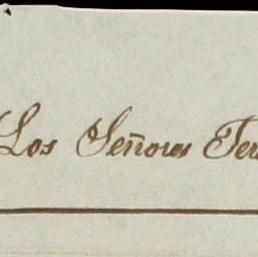 Los Señores Ter